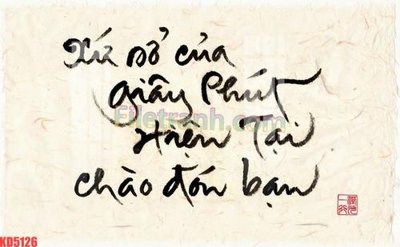 Xứ sở của
Giây Phút
Hiện Tại
chào đón bạn
Filetranh.com
KD5126